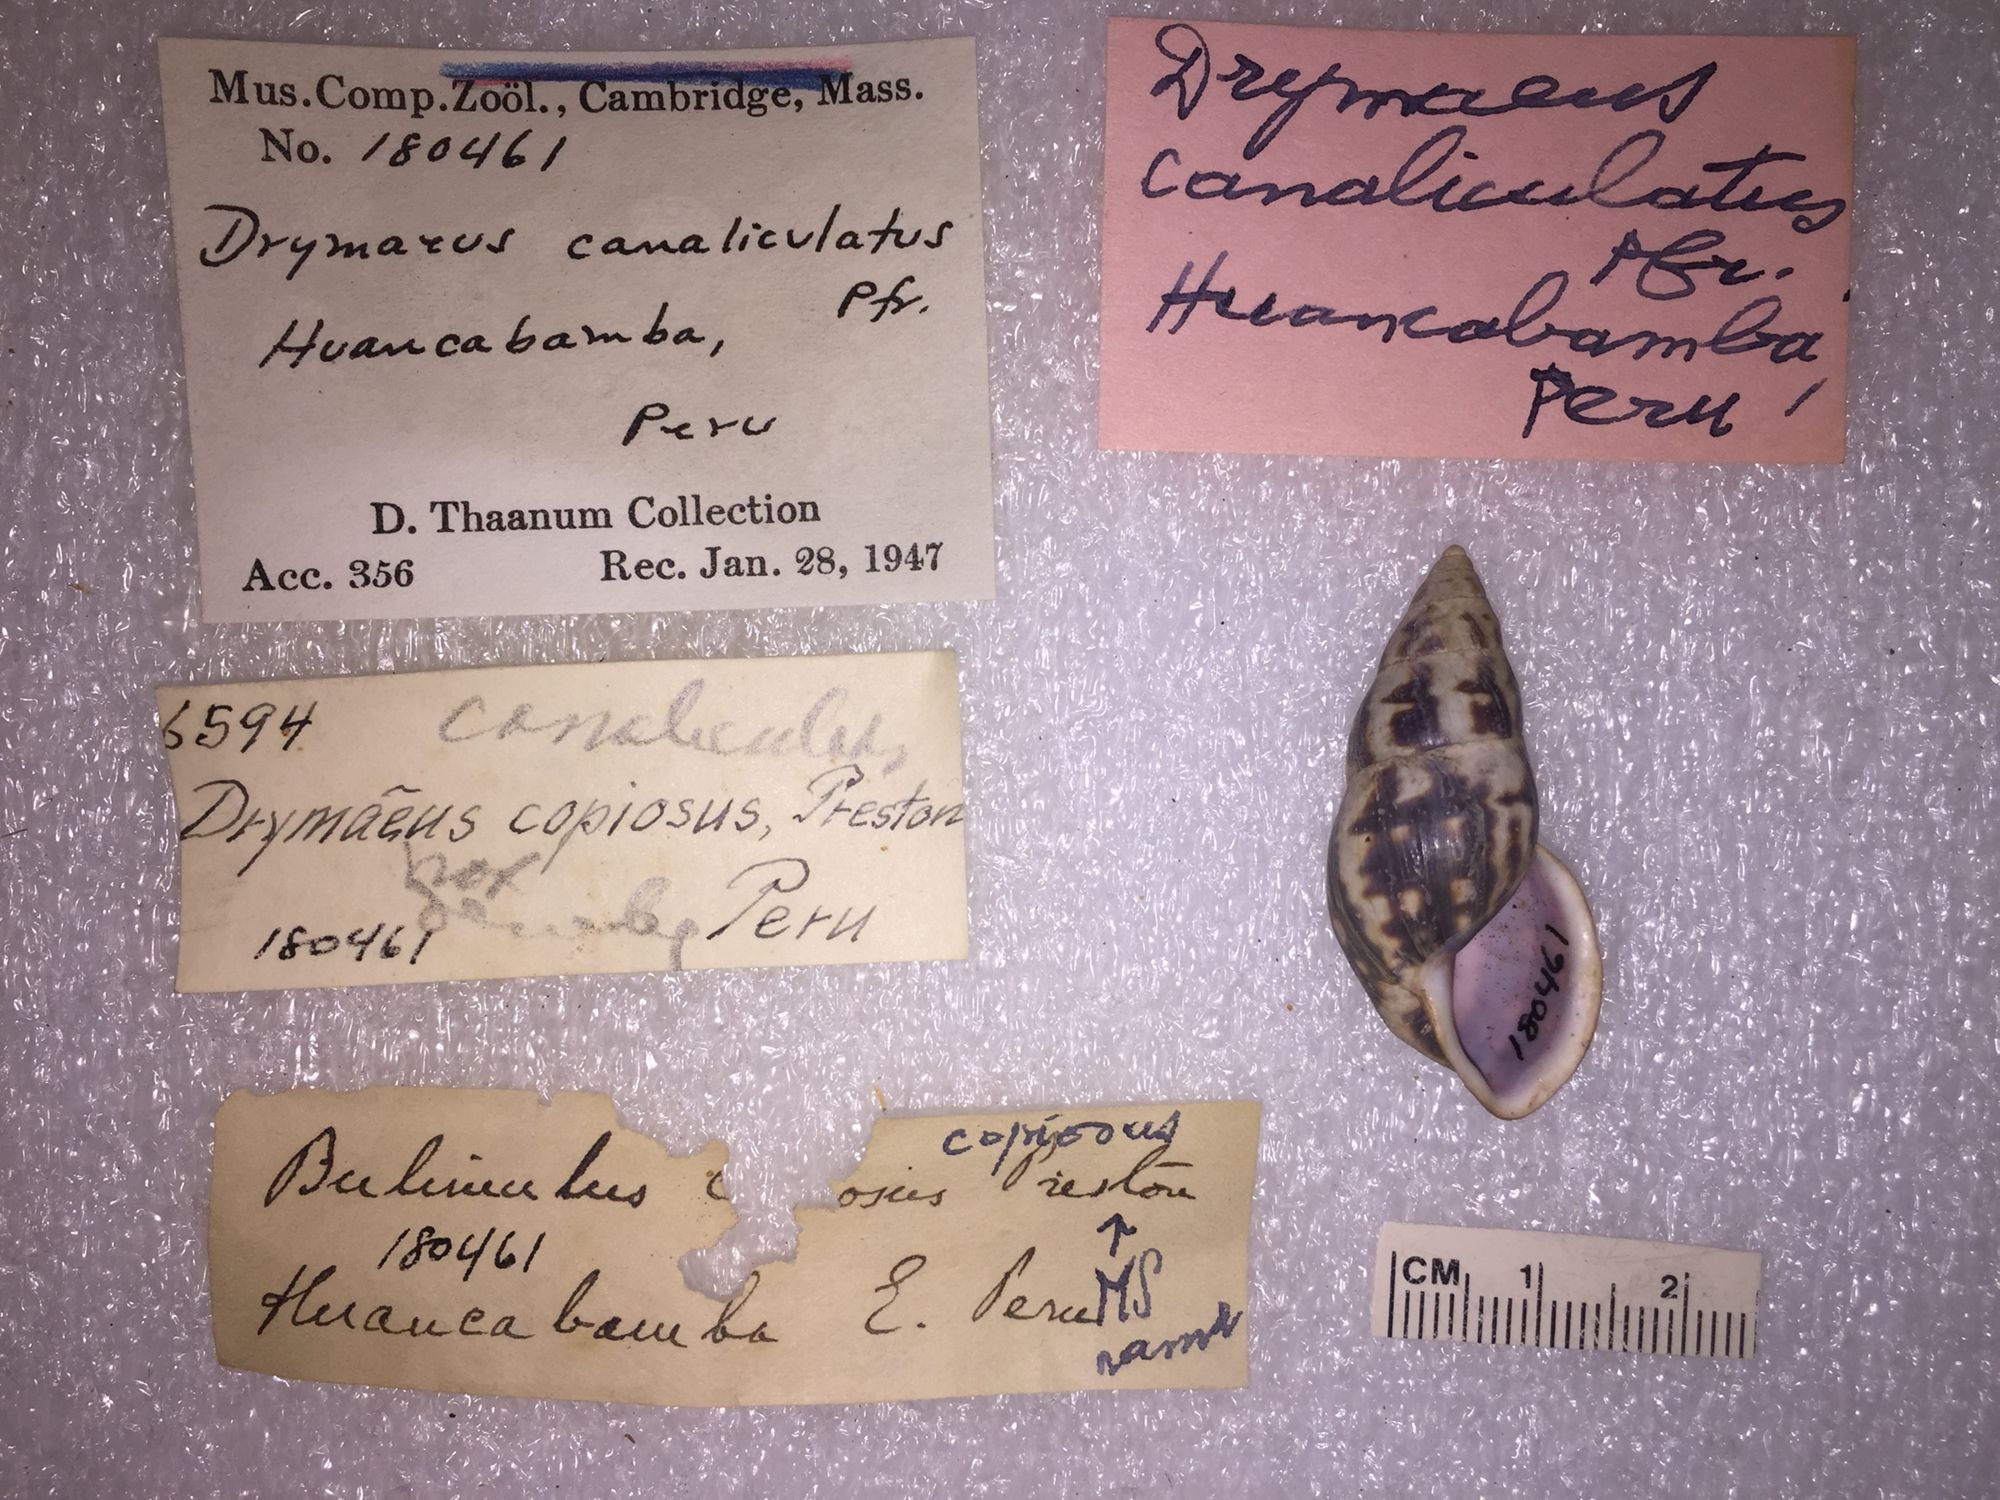 Mus.Comp.Zoöl., Cambridge, Mass.
No. 180461
Drymaeus canaliculatus
Pfr.
Huancabamba,
Peru
D. Thaanum Collection
Acc. 356 Rec. Jan. 28, 1947
Drymaeus
canaliculatus
Pfr.
Huancabamba
Peru
6594
Drymaēus copiosus, Preston
180461 Peru
copiosus
Bulimulus osus Preston
180461
Huancabamba E. Peru
↑
MS
name
180461
CM 1 2